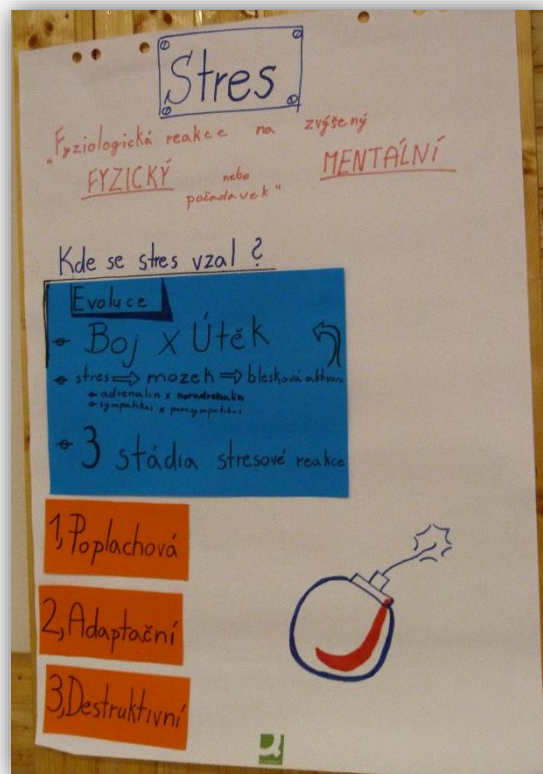 Stres
"Fyziologická reakce na zvýšený
FYZICKÝ nebo MENTÁLNÍ
požadavek"
Kde se stres vzal ?
Evoluce
Boj x Útěk
stres ⇒ mozek ⇒ blesková aktivace
adrenalin x noradrenalin
sympatikus x parasympatikus
3 stádia stresové reakce
1, Poplachová
2, Adaptační
3, Destruktivní